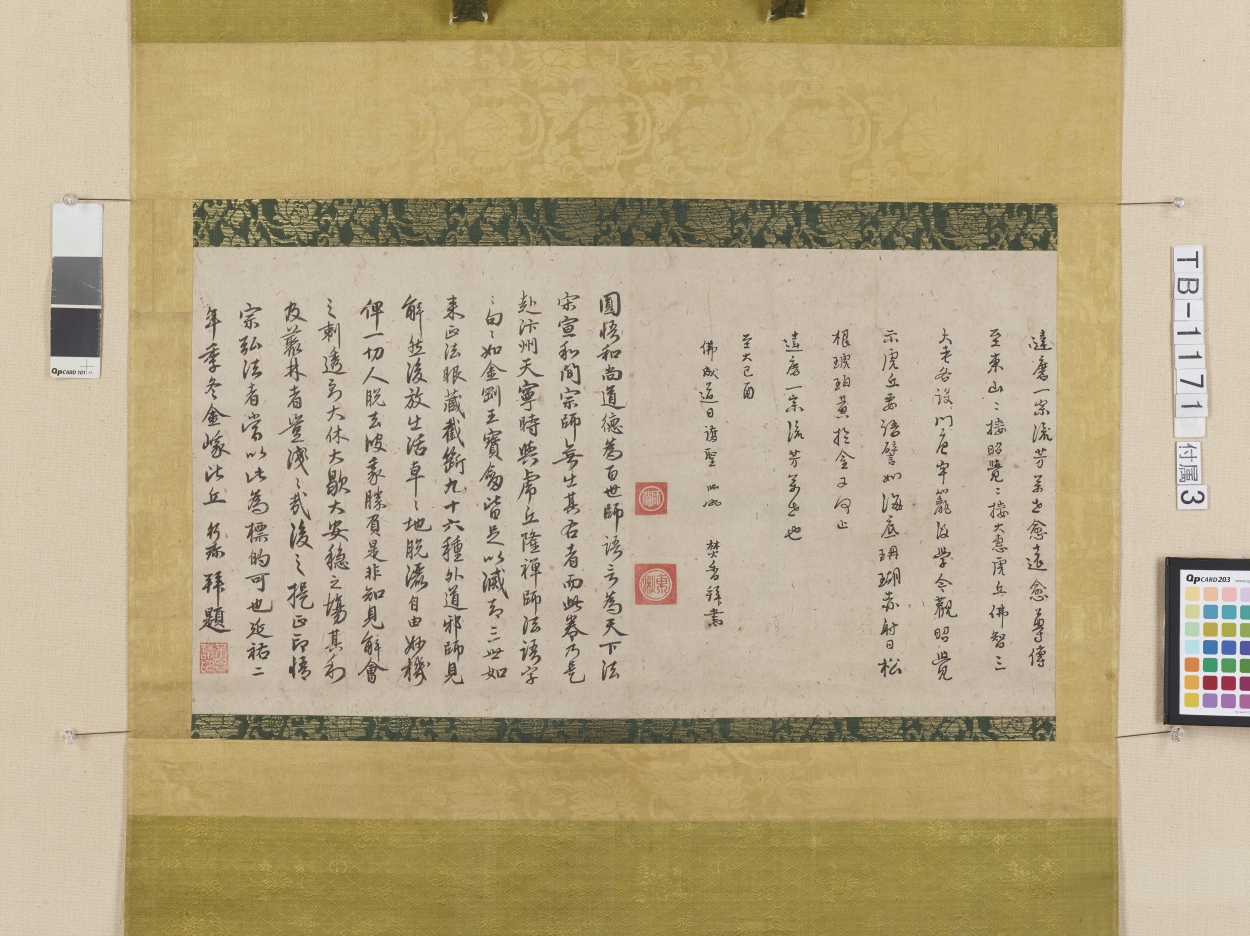 達磨一宗流芳万世愈遠愈尊傳
至東山〻接昭覺〻接大惠虎丘佛智三
大老各設門庭牢籠後學今觀昭覺
示虎丘要語譬如海底珊瑚赤射日松
根琥珀黃於金又何止
達磨一宗流芳萬世也
至大己酉
佛成道日 焚香拜書
圓悟和尚道德為百世師語言為天下法
宋宣和間宗師無出其右者而此卷乃是
赴汴州天寧時與虎丘隆禪師法語字
〻句〻如金剛王寶劔皆足以滅却三世如
來正法眼藏截斷九十六種外道邪師見
解然後放生活卓〻地脫灑自由妙機
俾一切人脫去彼我勝負是非知見解會
之刺透到大休大歇大安穩之場其利
及叢林者豈淺〻哉後之提正印情
宗弘法者當以此為標的可也延祐二
年季冬金峨比丘 拜題
TB-1171
付属3
QpCARD 101
QpCARD 203